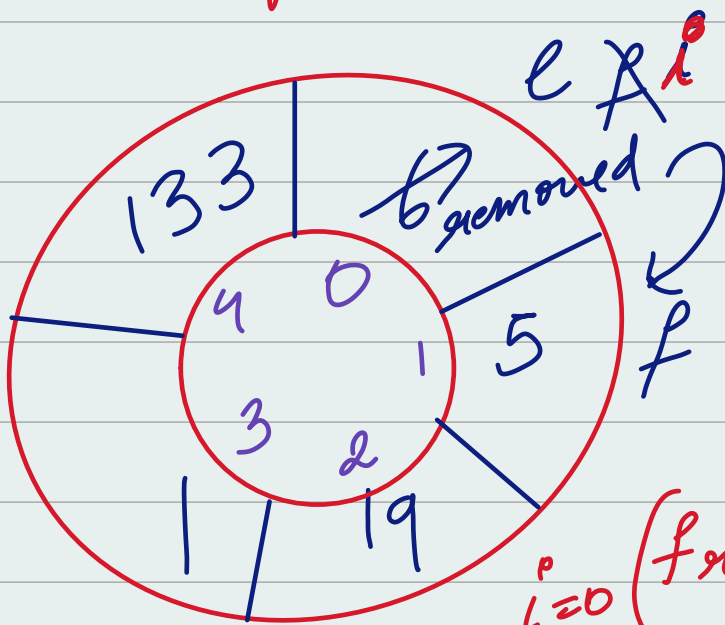 e f i
133
6 removed
4 0
5
f
1
3 2
1
19
i=0 (f